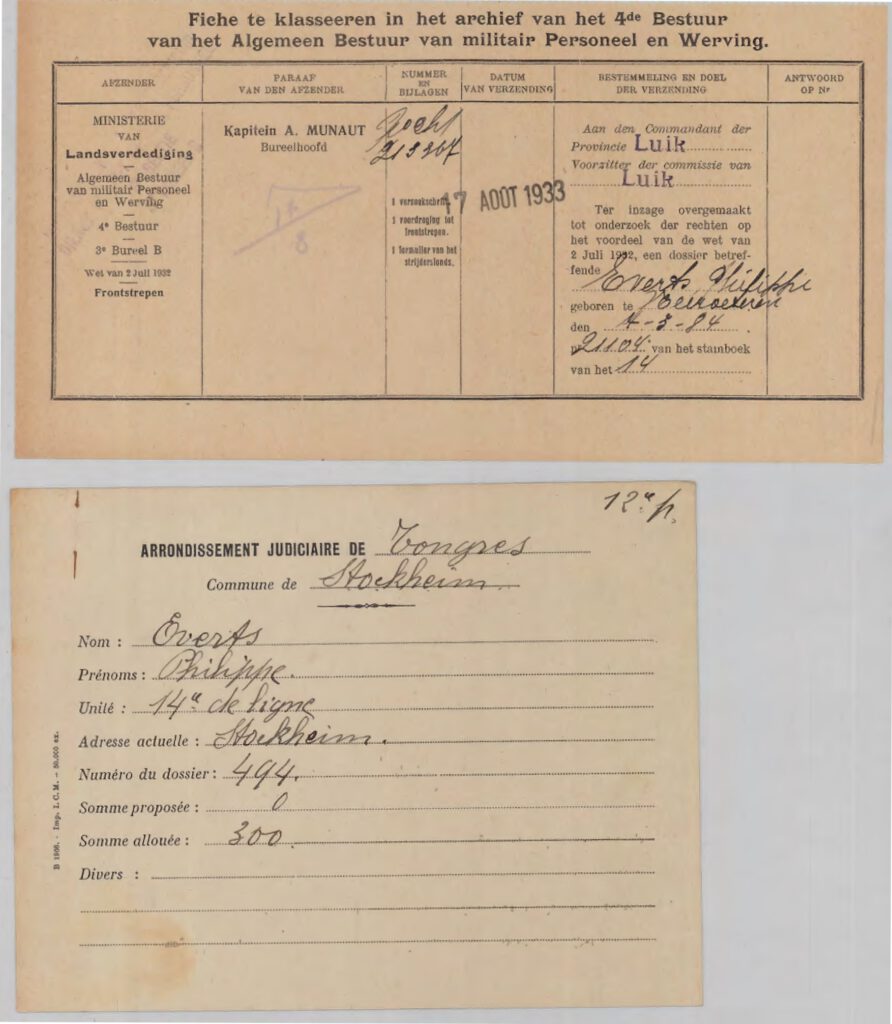 Fiche te klasseeren in het archief van het 4de Bestuur
van het Algemeen Bestuur van militair Personeel en Werving.
AFZENDER
PARAAF
VAN DEN AFZENDER
NUMMER
EN
BIJLAGEN
DATUM
VAN VERZENDING
BESTEMMELING EN DOEL
DER VERZENDING
ANTWOORD
OP Nr
MINISTERIE
VAN
Landsverdediging
Algemeen Bestuur
van militair Personeel
en Werving
4e Bestuur
3e Bureel B
Wet van 2 Juli 1932
Frontstrepen
Kapitein A. MUNAUT
Bureelhoofd
1 verzoekschrift
1 voordraging tot
frontstrepen.
1 formulier van het
strijdersfonds.
17 AOUT 1933
Aan den Commandant der
Provincie Luik
Voorzitter der commissie van
Luik
Ter inzage overgemaakt
tot onderzoek der rechten op
het voordeel van de wet van
2 Juli 1932, een dossier betref-
fende Everts Philippe
geboren te
den 4-5-84
nr 21104 van het stamboek
van het 14
12e p.
ARRONDISSEMENT JUDICIAIRE DE Tongres
Commune de Stockheim
Nom : Everts
Prénoms : Philippe.
Unité : 14e de ligne
Adresse actuelle : Stockheim.
Numéro du dossier : 494.
Somme proposée : 0
Somme allouée : 300
Divers :
B 1908. - Imp. I. C. M. - 50.000 ex.